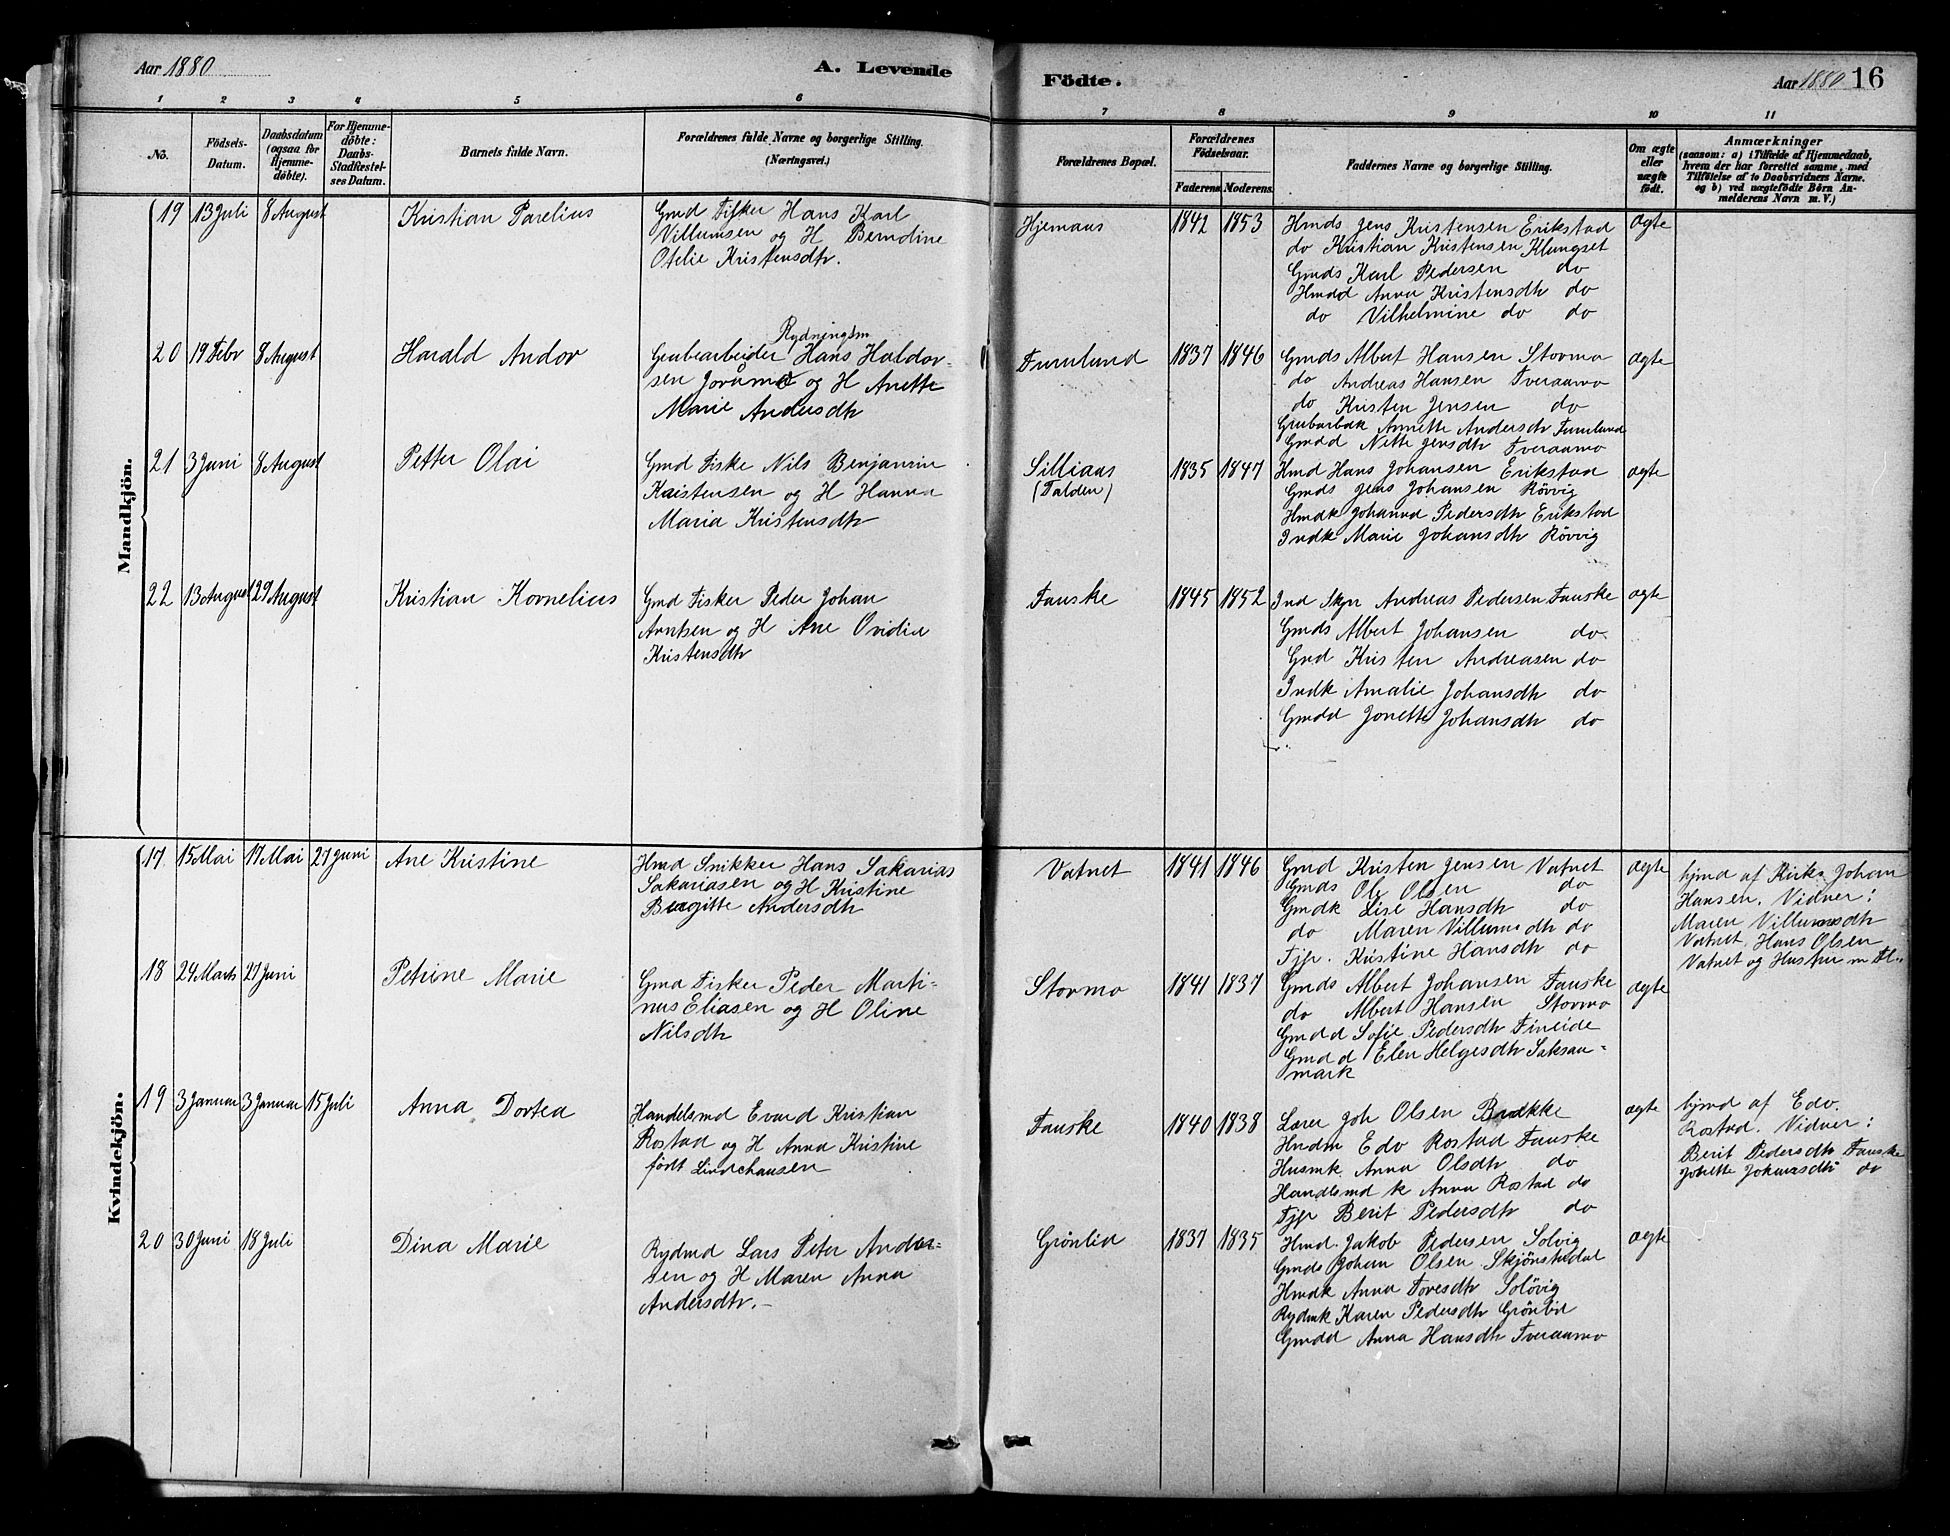 Aar 1880
A. Levende
Födte.
Aar 1880 16
1 2 3 4 5 6 7 8 9 10 11
No.
Födsels-Datum.
Daabsdatum (ogsaa for Hjemme-döbte).
For Hjemme-döbte: Daabs-Stadfæstelses Datum.
Barnets fulde Navn.
Forældrenes fulde Navne og borgerlige Stilling. (Næringsvei.)
Forældrenes Bopæl.
Forældrenes Födselsaar.
Faderens. Moderens.
Faddernes Navne og borgerlige Stilling.
Om ægte eller uægte födt.
Anmærkninger
(saasom: a) i Tilfælde af Hjemmedaab, hvem der har forrettet samme, med Tilföielse af to Daabsvidners Navne. og b) ved uægtefödte Börn Anmelderens Navn m. V.)
Mandkjön.
19 13 Juli 8 August
Kristian Parelius
Gmd Fisker Hans Karl
Villumsen og H Berndine
Otelie Kristensdtr.
Hjemaas
1842 1853
Hmds Jens Kristensen Erikstad
do Kristian Kristensen Klungset
Gmds Karl Pedersen do
Hmdd Anna Kristensdtr do
do Vilhelmine do do
Ægte
20 19 Febr 8 August
Harald Andor
Rydningsm
Grubearbeider Hans Haldor-
sen Joramo og H Anette
Marie Andersdtr
Furulund
1837 1846
Gmds Albert Hansen Stormo
do Andreas Hansen Tveraamo
do Kristen Jensen do
Grubarbdk Annette Andersdtr Furulund
Gmdd Nette Jensdtr Tveraamo
ægte
21 3 Juni 8 August
Petter Olai
Gmd Fiske Nils Benjamin
Kristensen og H Hanna
Maria Kristensdtr
Silliaas
(Valden)
1835 1847
Hmd Hans Johansen Erikstad
Gmds Jens Johansen Rövvig
Hmdk Johanna Pedersdtr Erikstad
Indk Marie Johansdtr Rövvig
ægte
22 13 August 29 August
Kristian Kornelius
Gmd Fisker Peder Johan
Arntsen og H Ane Ovidia
Kristensdtr
Fauske
1845 1852
Ind Skpr Andreas Pedersen Fauske
Gmds Albert Johansen do
Gmd Kristen Andreasen do
Indk Amalie Johansdtr do
Gmdd Jonette Johansdtr do
ægte
Kvindekjön.
17 15 Mai 17 Mai 27 Juni
Ane Kristine
Hmd Snikker Hans Sakarias
Sakariasen og H Kristine
Bergitte Andersdtr
Vatnet
1841 1846
Gmd Kristen Jensen Vatnet
Gmds Ole Olsen do
Gmdk Lise Hansdtr do
do Maren Villumsdtr do
Tjp. Kristine Hansdtr do
ægte
hjmd af Kirks. Johan
Hansen. Vidner:
Maren Villumsdtr
Vatnet, Hans Olsen
Vatnet og Hustru m Fl.
18 24 Marts 27 Juni
Petrine Marie
Gmd Fisker Peder Marti-
nus Eliasen og H Oline
Nilsdtr
Stormo
1841 1837
Gmds Albert Johansen Fauske
do Albert Hansen Stormo
Gmd d Sofie Pedersdtr Fineide
Gmd d Elen Helgesdtr Saksen-
mark
ægte
19 3 Januar 3 Januar 15 Juli
Anna Dortea
Handelsmd Evard Kristian
Rostad og H Anna Kristine
født Lindehausen
Fauske
1840 1838
Lærer Joh Olsen Brekke
Hndm Edv Rostad Fauske
Husmk. Anna Olsdtr do
Handlsmd k Anna Rostad do
Tjp Berit Pedersdtr do
ægte
hjmd af Edv.
Rostad. Vidner:
Berit Pedersdtr Fauske
Jonette Johansdtr do
20 30 Juni 18 Juli
Dina Marie
Rydmd Lars Peter Ander-
sen og H Maren Anna
Andersdtr.
Grönlid
1837 1835
Hmd. Jakob Pedersen Solvig
Gmds Johan Olsen Skjönstedal
Hmdk Anna Toresdtr Solövig
Rydmk Karen Pedersdtr Grönlid
Gmdd Anna Hansdtr Tveraamo
ægte